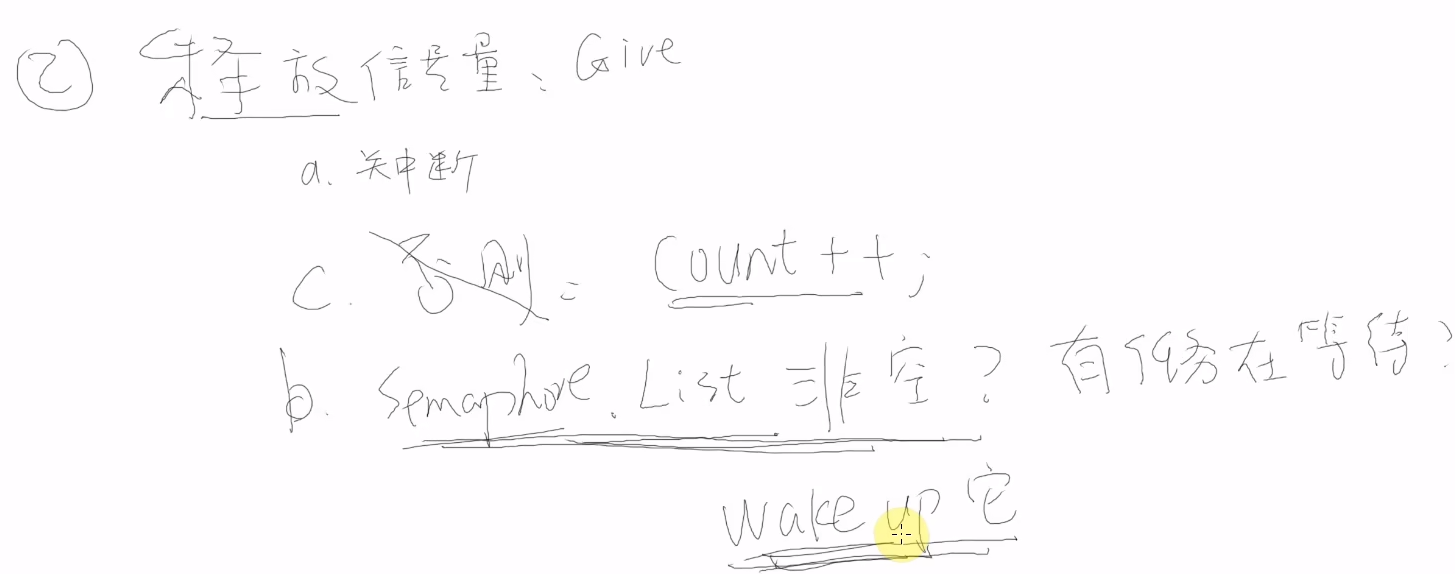 ② 释放信号量、Give
a. 关中断
c. 否则: Count++;
b. Semaphore.List 非空? 有任务在等待?
wake up 它